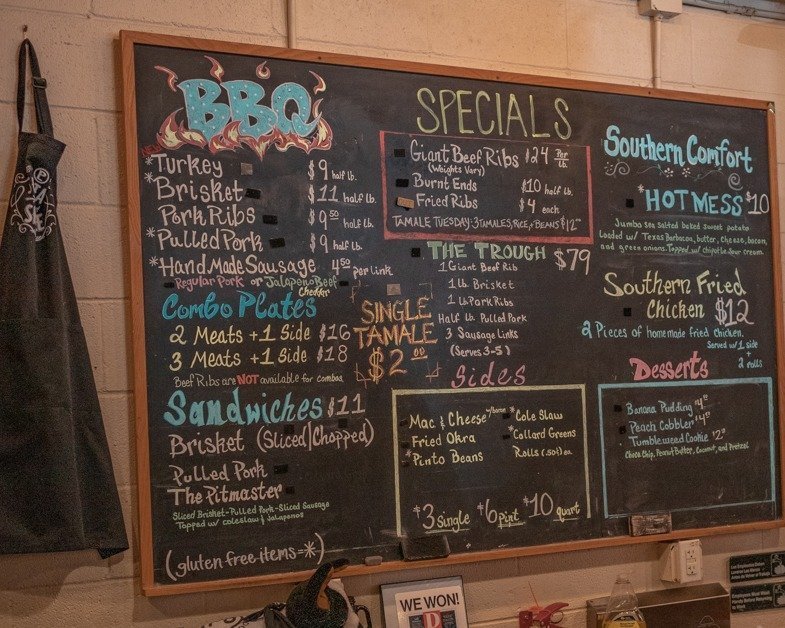 BBQ
NEW
*Turkey $9 half lb.
*Brisket $11 half lb.
Pork Ribs $9.50 half lb.
*Pulled Pork $9 half lb.
*HandMade Sausage 4.50 per link
Regular Pork or Jalapeno Beef
Cheddar
Combo Plates
2 Meats + 1 Side $16
3 Meats + 1 Side $18
Beef Ribs are NOT available for combos
Sandwiches $11
Brisket (Sliced/Chopped)
Pulled Pork
The Pitmaster
Sliced Brisket-Pulled Pork-Sliced Sausage
Topped w/ coleslaw & Jalapenos
(gluten free items=*)
SPECIALS
Giant Beef Ribs $24 Per lb.
(Weights Vary)
Burnt Ends $10 half lb.
Fried Ribs $4 each
TAMALE TUESDAY: 3 TAMALES, RICE, & BEANS $12.00
THE TROUGH $79
1 Giant Beef Rib
1 lb. Brisket
1 lb Pork Ribs
Half lb. Pulled Pork
3 Sausage Links
(Serves 3-5)
SINGLE
TAMALE
$2.00
Sides
Mac & Cheese w/Bacon
Fried Okra
*Pinto Beans
*Cole Slaw
*Collard Greens
Rolls (.50¢) ea
$3 Single $6 pint $10 quart
Southern Comfort
*HOT MESS $10
Jumbo sea salted baked sweet potato
Loaded w/ Texas Barbacoa, butter, cheese, bacon,
and green onions. Topped w/ chipotle sour cream.
Southern Fried
Chicken $12
2 Pieces of homemade fried chicken.
Served w/ 1 side
+
2 rolls
Desserts
Banana Pudding $4
Peach Cobbler $4
Tumbleweed Cookie $2
Choco Chip, Peanut Butter, Coconut, and Pretzel
WE WON!
Los Empleados Deben
Lavarse Las Manos
Antes de Volver al Trabajo
Employees Must Wash
Hands Before Returning
to Work